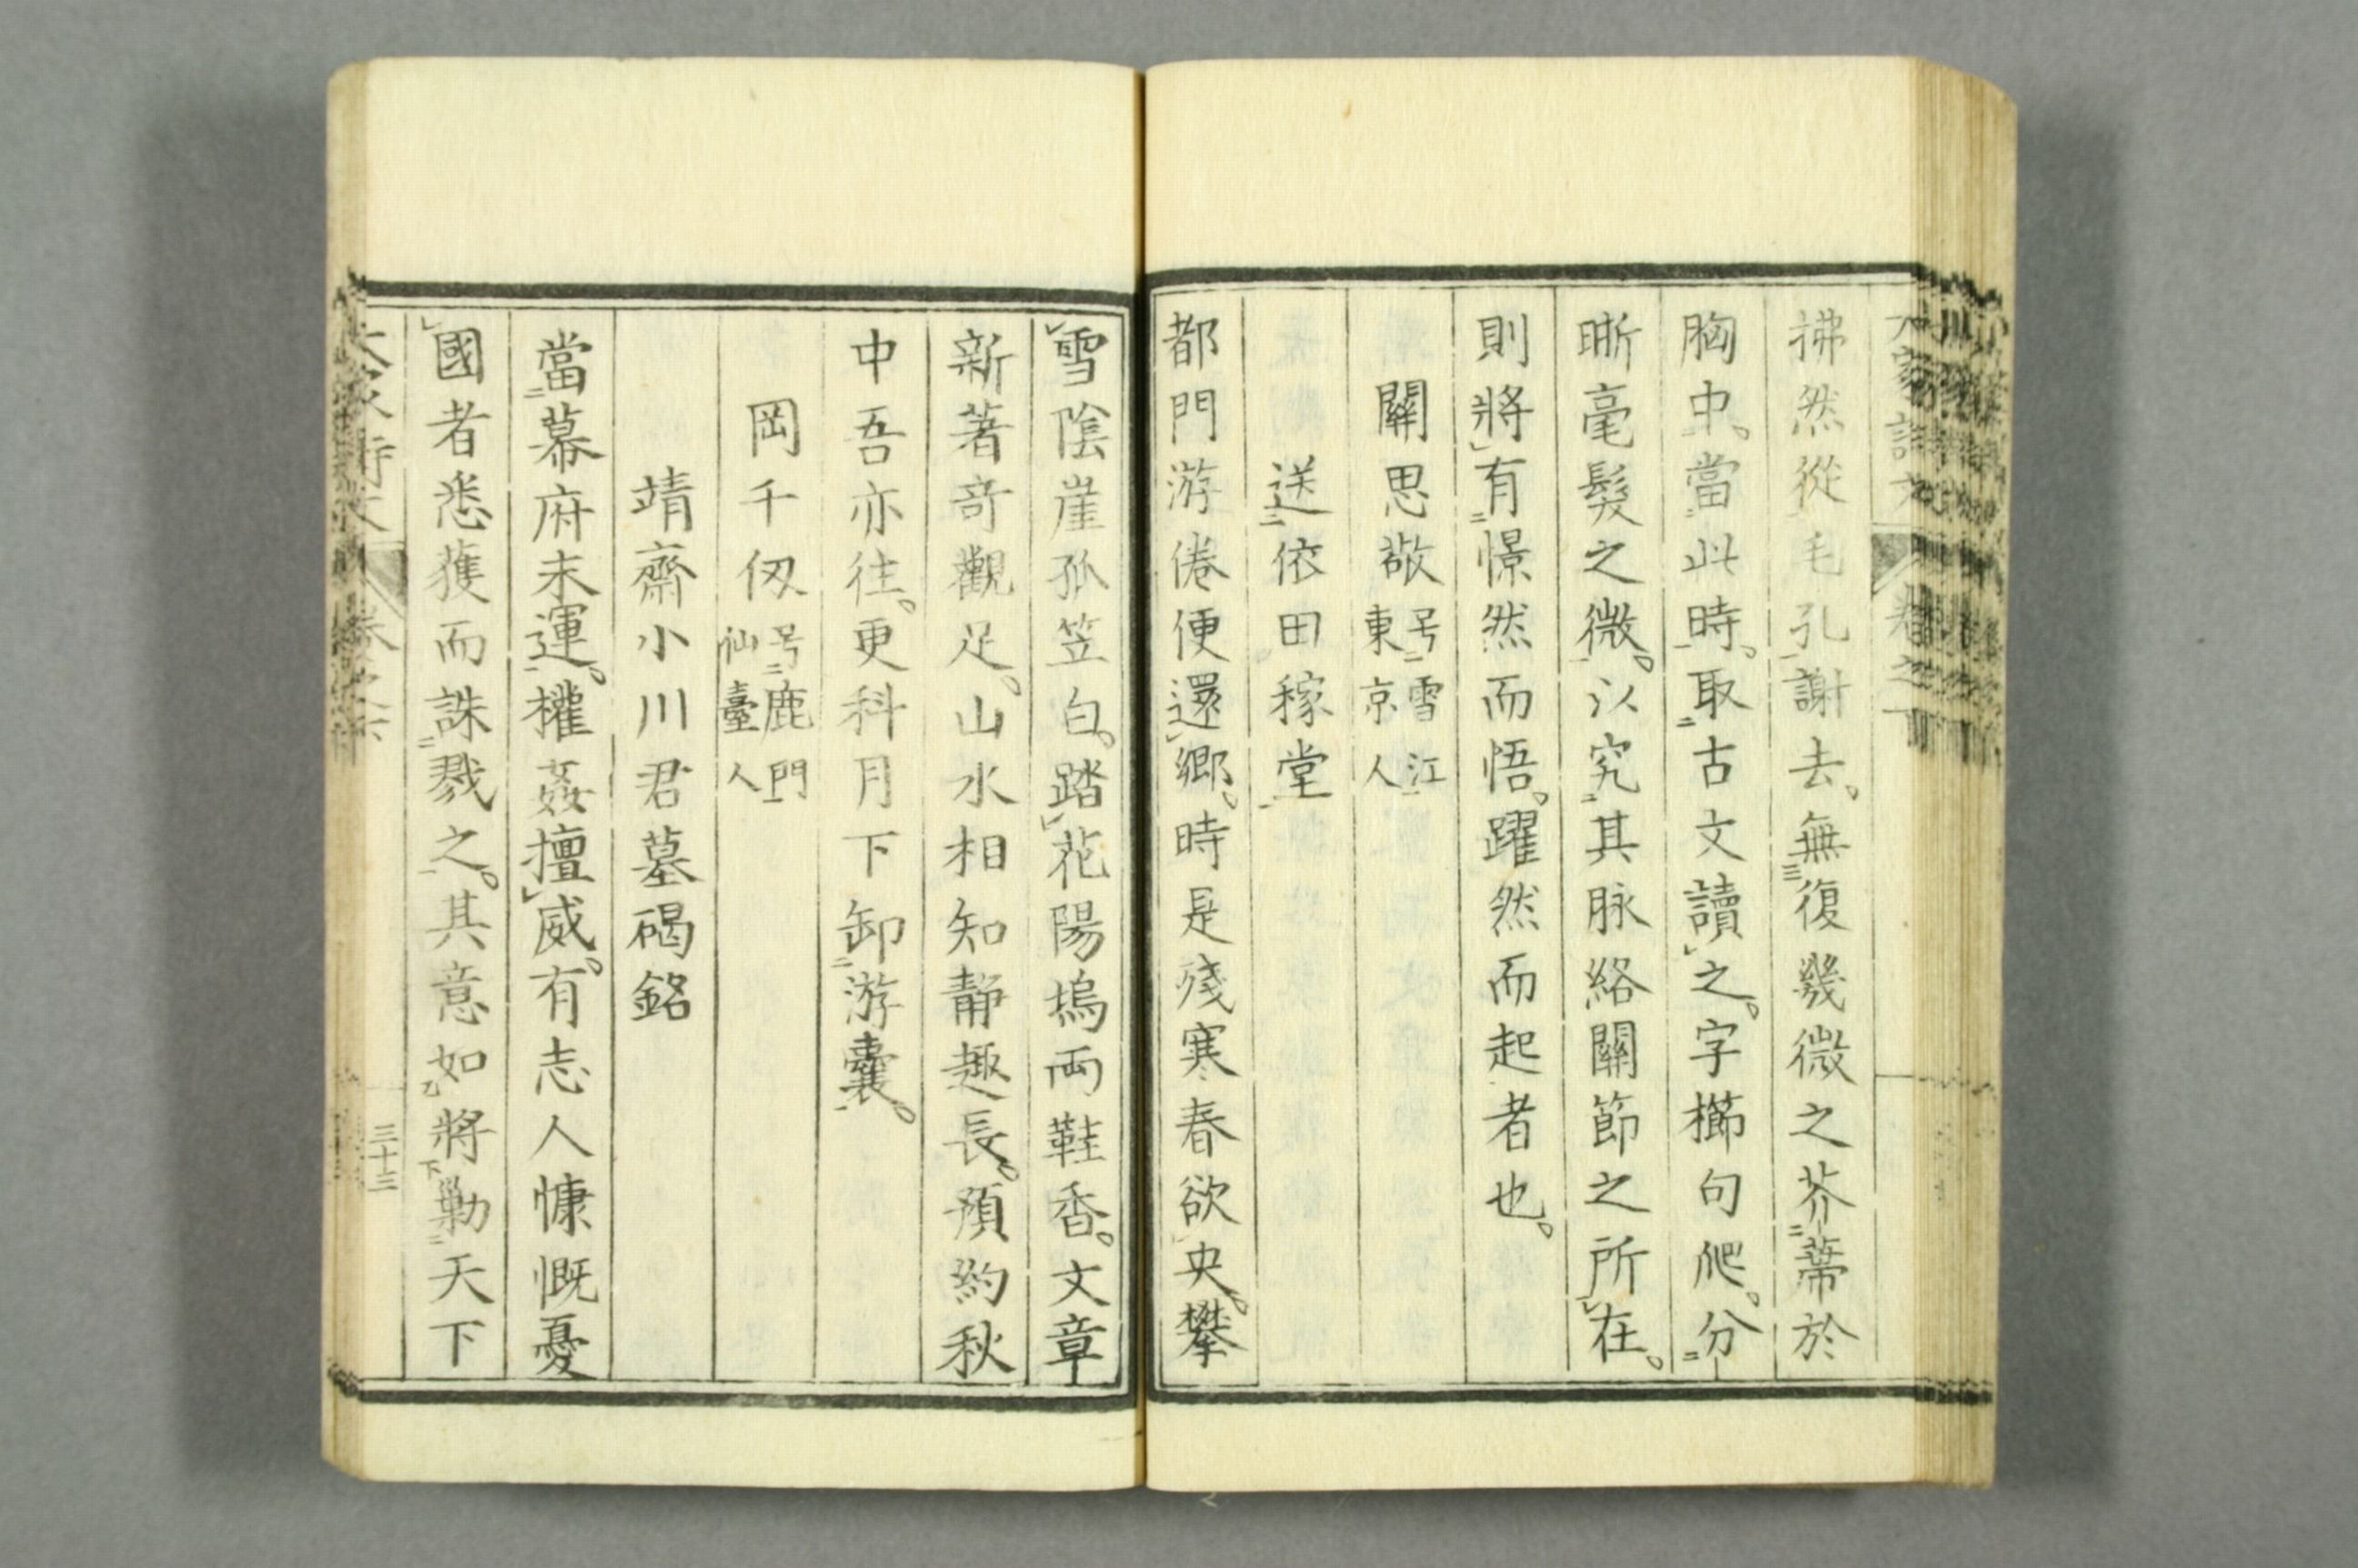 拂然從毛孔謝去。無復幾微之芥蔕於
胸中。當此時。取古文讀之。字櫛句爬。分
晰毫髮之微。以究其脉絡關節之所在。
則將有憬然而悟。躍然而起者也。
關思敬 号雪江 東京人
送依田稼堂
都門游倦便還鄉。時是殘寒春欲央。攀
雪陰崖孤笠白。踏花陽塢両鞋香。文章
新著奇觀足。山水相知靜趣長。預約秋
中吾亦往。更科月下卸游囊。
岡千仭 号鹿門 仙臺人
靖齋小川君墓碣銘
當幕府末運。權姦擅威。有志人慷慨憂
國者悉獲而誅戮之。其意如將勦天下
三十三